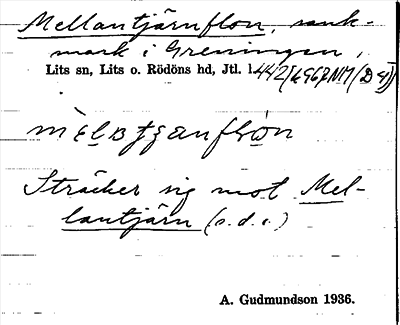 Mellantjärnflon, sank-
mark i Greningen,
Lits sn, Lits o. Rödöns hd, Jtl. l.
Sträcker sig mot Mel-
lantjärn (s.d.o.)
A. Gudmundson 1936.